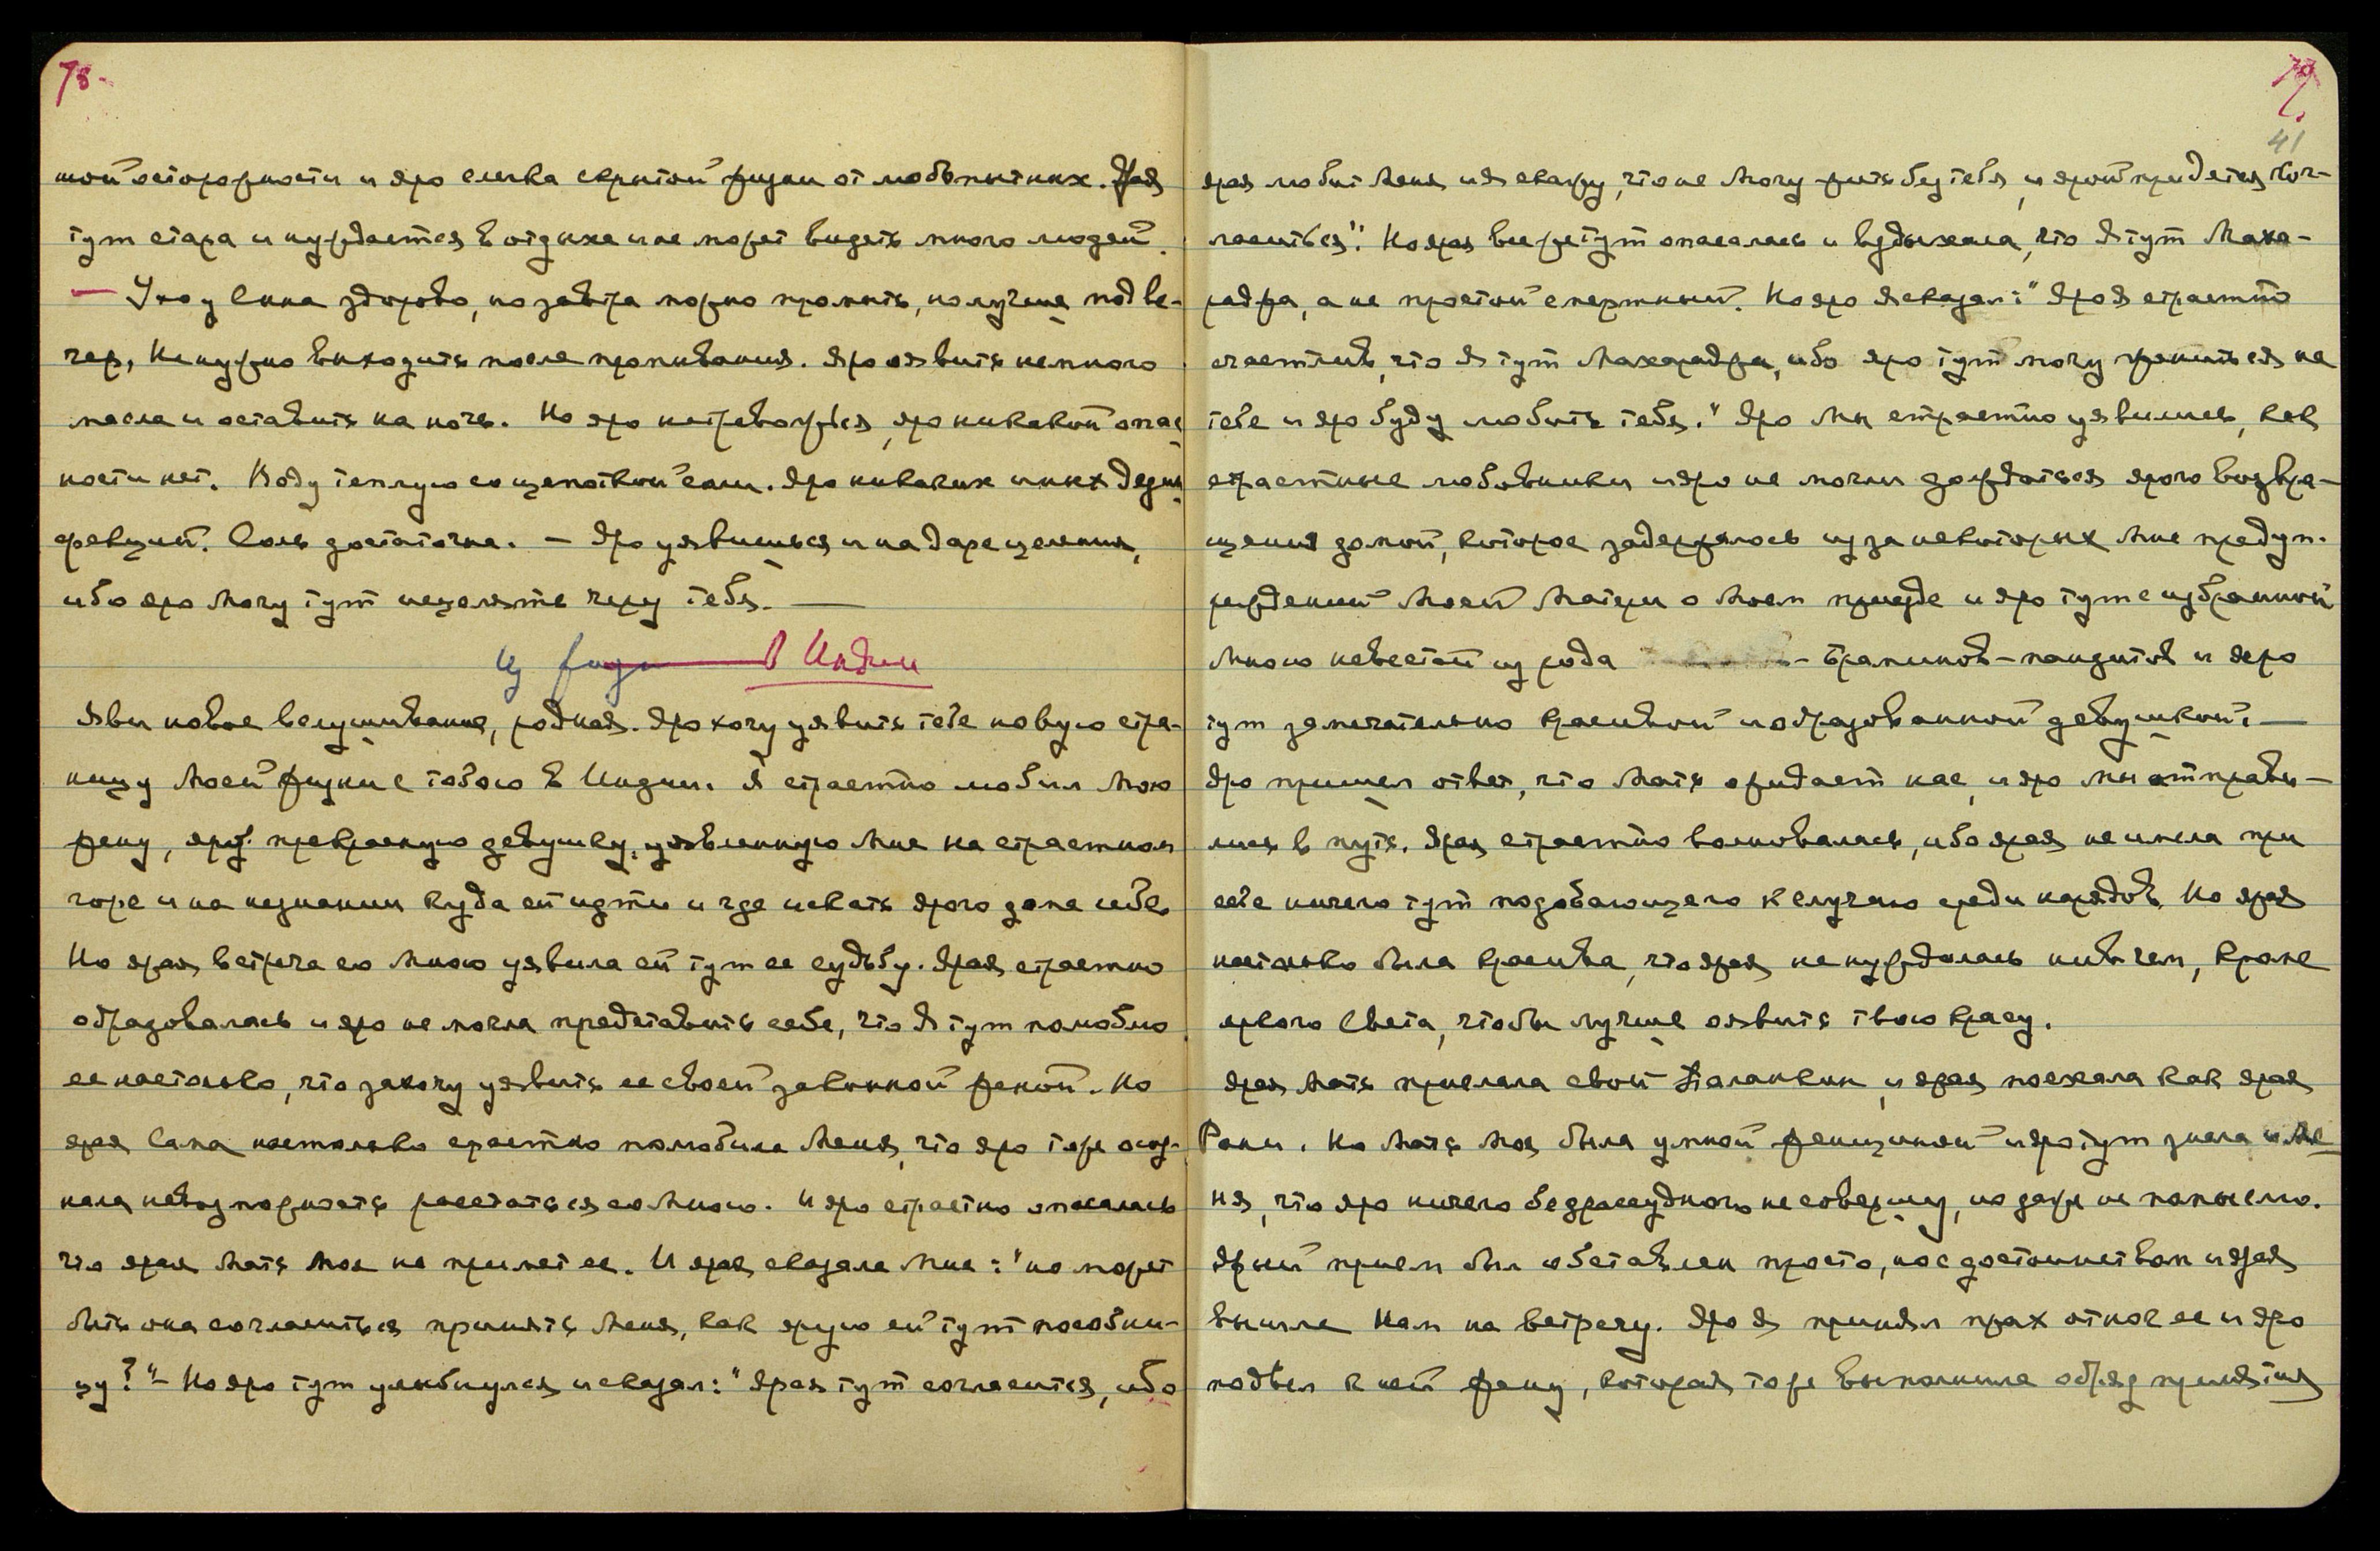 78.
шой осторожности и яро слегка скрытой жизни от любопытных. Ярая
тут стара и нуждается в отдыхе и не может видеть много людей.
— Ухо у Сына здорово, но завтра можно промыть, но лучше под ве-
чер, Не нужно выходить после промывания. Яро оявить немного
масла и оставить на ночь. Но яро не тревожься, яро никакой опас
ности нет. Воду теплую со щепоткой соли. Яро никаких иных дезин
фекций. Соль достаточна. — Яро уявишься и на даре целения,
ибо яро Могу тут исцелять через тебя. —
Из жизни в Индии
Яви новое вслушивание, родная. Яро хочу уявить тебе новую стра-
ницу Моей жизни с тобою в Индии. Я страстно любил Мою
жену, ярую прекрасную девушку, уявленную Мне на страстном
горе и на незнании куда ей идти и где искать ярого дома себе.
Но ярая встреча со Мною уявила ей тут ее судьбу. Ярая страстно
обрадовалась и яро не могла представить себе, что Я тут полюблю
ее настолько, что захочу уявить ее своей законной женой. Но
ярая Сама настолько страстно полюбила Меня, что яро тоже осоз-
нала невозможность расстаться со Мною. И яро страстно опасалась
что ярая Мать Моя не примет ее. И ярая сказала Мне: "но может
быть она согласиться принять Меня, как ярую ей тут пособни-
цу?" — Но яро тут улыбнулся и сказал: "Ярая тут согласится, ибо
79.
41
ярая любит Меня и Я скажу, что не Могу жить без тебя, и ярой придется сог-
ласиться". Но ярая все же тут опасалась и вздыхала, что Я тут Маха-
раджа, а не простой смертный. Но яро Я сказал: "Яро Я страстно
счастлив, что Я тут Махараджа, ибо яро тут могу жениться на
тебе и яро буду любить тебя." Яро Мы страстно уявились, как
страстные любовники и яро не могли дождаться ярого возвра-
щения домой, которое задержалось из за некоторых Мне предуп-
реждений Моей Матери о Моем приезде и яро тут с избранной
Мною невестой из рода - Браминов-пандитов и яро
тут замечательно красивой и образованной девушкой. —
Яро пришел ответ, что Мать ожидает нас, и яро мы отправи-
лись в путь. Ярая страстно волновалась, ибо ярая не имела при
себе ничего тут подобающего к случаю среди нарядов. Но ярая
настолько была красива, что ярая не нуждалась ни в чем, кроме
яркого Света, чтобы лучше оявить твою красу.
Ярая Мать прислала свой Паланкин, и ярая поехала как ярая
Рани. Но Мать Моя была умной женщиной и яро тут знала и Ме
ня, что яро ничего безрассудного не совершу, но даже не помыслю.
Ярый прием был обставлен просто, но с достоинством и ярая
вышла Нам на встречу. Яро Я принял прах от ног ее и яро
подвел к ней жену, которая тоже выполнила обряд принятия